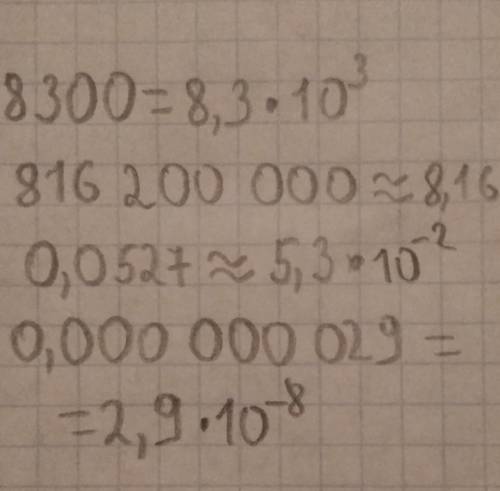 8300=8,3·10³
816 200 000≈8,16
0,0527≈5,3·10⁻²
0,000 000 029=
=2,9·10⁻⁸